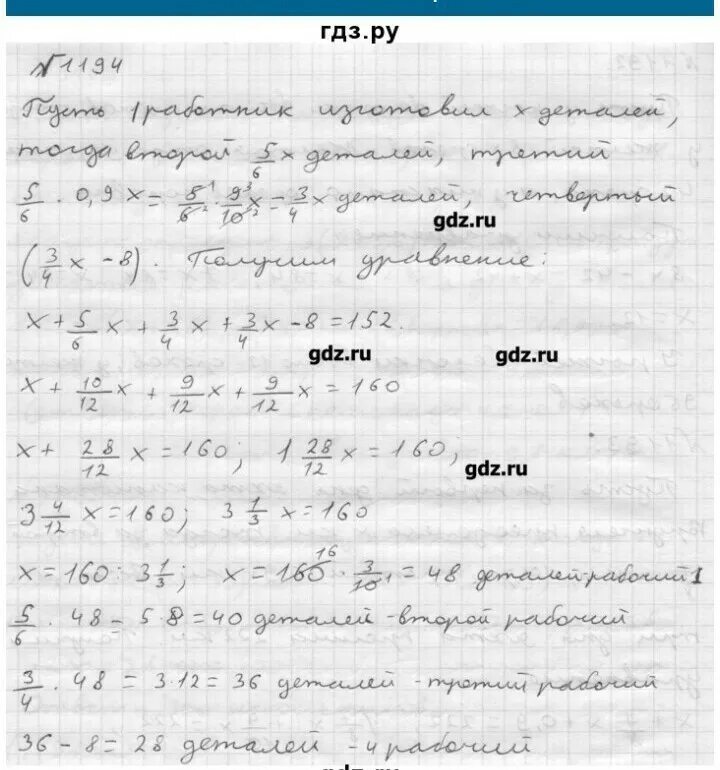 гдз.ру
№1194
Пусть 1 работник изготовил x деталей,
тогда второй 5/6 x деталей, третий
5/6 · 0,9x = 5/6 · 9/10 x = 3/4 x деталей, четвертый
gdz.ru
(3/4 x - 8). Получим уравнение:
x + 5/6 x + 3/4 x + 3/4 x - 8 = 152.
gdz.ru gdz.ru
x + 10/12 x + 9/12 x + 9/12 x = 160
x + 28/12 x = 160; 1 28/12 x = 160;
gdz.ru
3 4/12 x = 160; 3 1/3 x = 160
x = 160 : 3 1/3; x = 160 · 3/10 = 48 деталей-рабочий 1
5/6 · 48 = 5·8 = 40 деталей -второй рабочий
3/4 · 48 = 3·12 = 36 деталей -третий рабочий
36 - 8 = 28 деталей - 4 рабочий